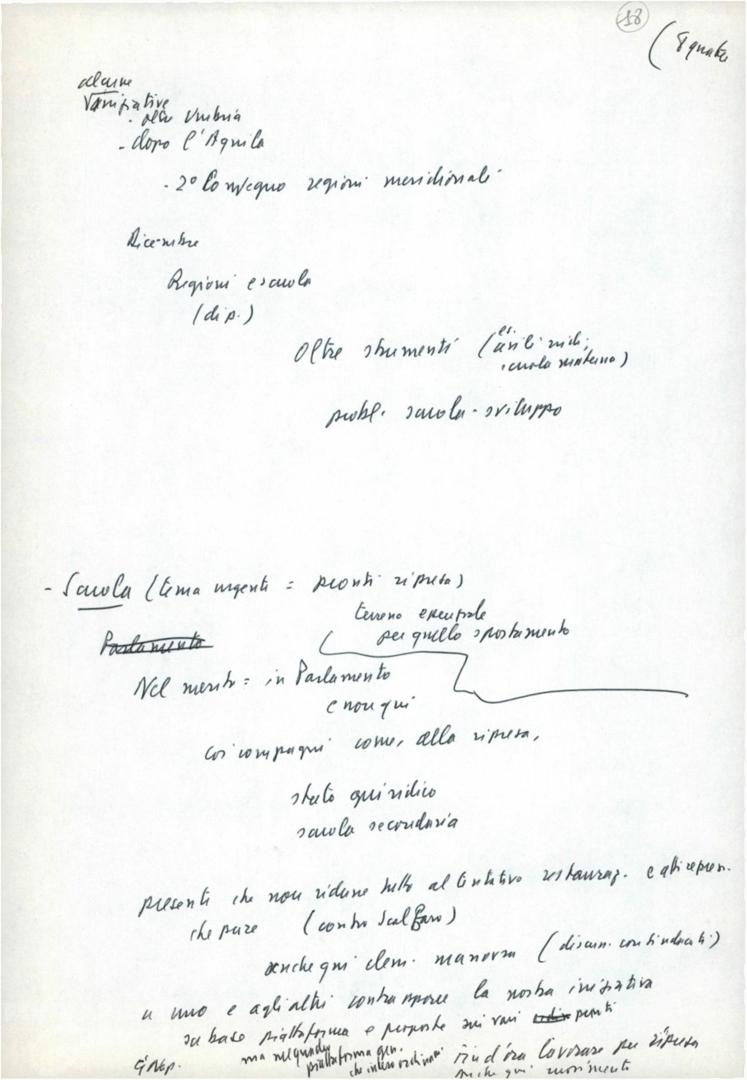 18
alcune
iniziative
- dopo l'Aquila
- 2° Convegno regioni meridionali
Dicembre
Regioni e scuola
(dip.)
Oltre strumenti (es. asili nidi;
scuola materna)
probl. scuola - sviluppo
- Scuola (tema urgenti = pronti ripresa)
terreno essenziale
Parlamento
per quello spostamento
Nel merito = in Parlamento
e non qui
coi compagni come, alla ripresa,
stato giuridico
scuola secondaria
presenti che non ridurre tutto al tentativo restauraz. e atti repres.
che pure (contro Scalfaro)
anche qui elem. manovra (discuss. coi sindacati)
a uno e agli altri contrapporre la nostra iniziativa
su base piattaforma e proposte sui vari punti
ma nel quadro
piattaforma gen.
fin d'ora lavorare per ripresa
anche qui movimento